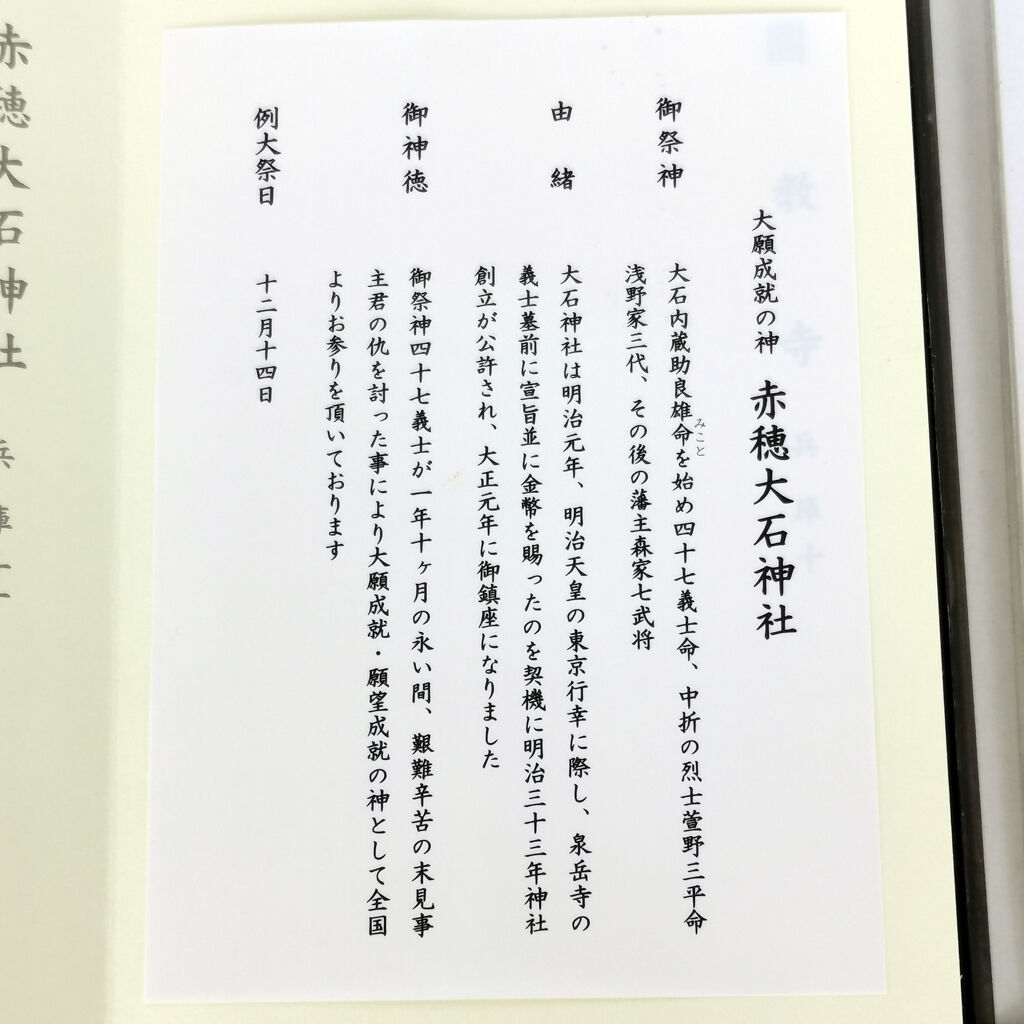 大願成就の神 赤穂大石神社
御祭神 大石内蔵助良雄命を始め四十七義士命、中折の烈士萱野三平命
みこと
浅野家三代、その後の藩主森家七武将
由緒 大石神社は明治元年、明治天皇の東京行幸に際し、泉岳寺の
義士墓前に宣旨並に金幣を賜ったのを契機に明治三十三年神社
創立が公許され、大正元年に御鎮座になりました
御神徳 御祭神四十七義士が一年十ヶ月の永い間、艱難辛苦の末見事
主君の仇を討った事により大願成就・願望成就の神として全国
よりお参りを頂いております
例大祭日 十二月十四日
赤穂大石神社 兵庫